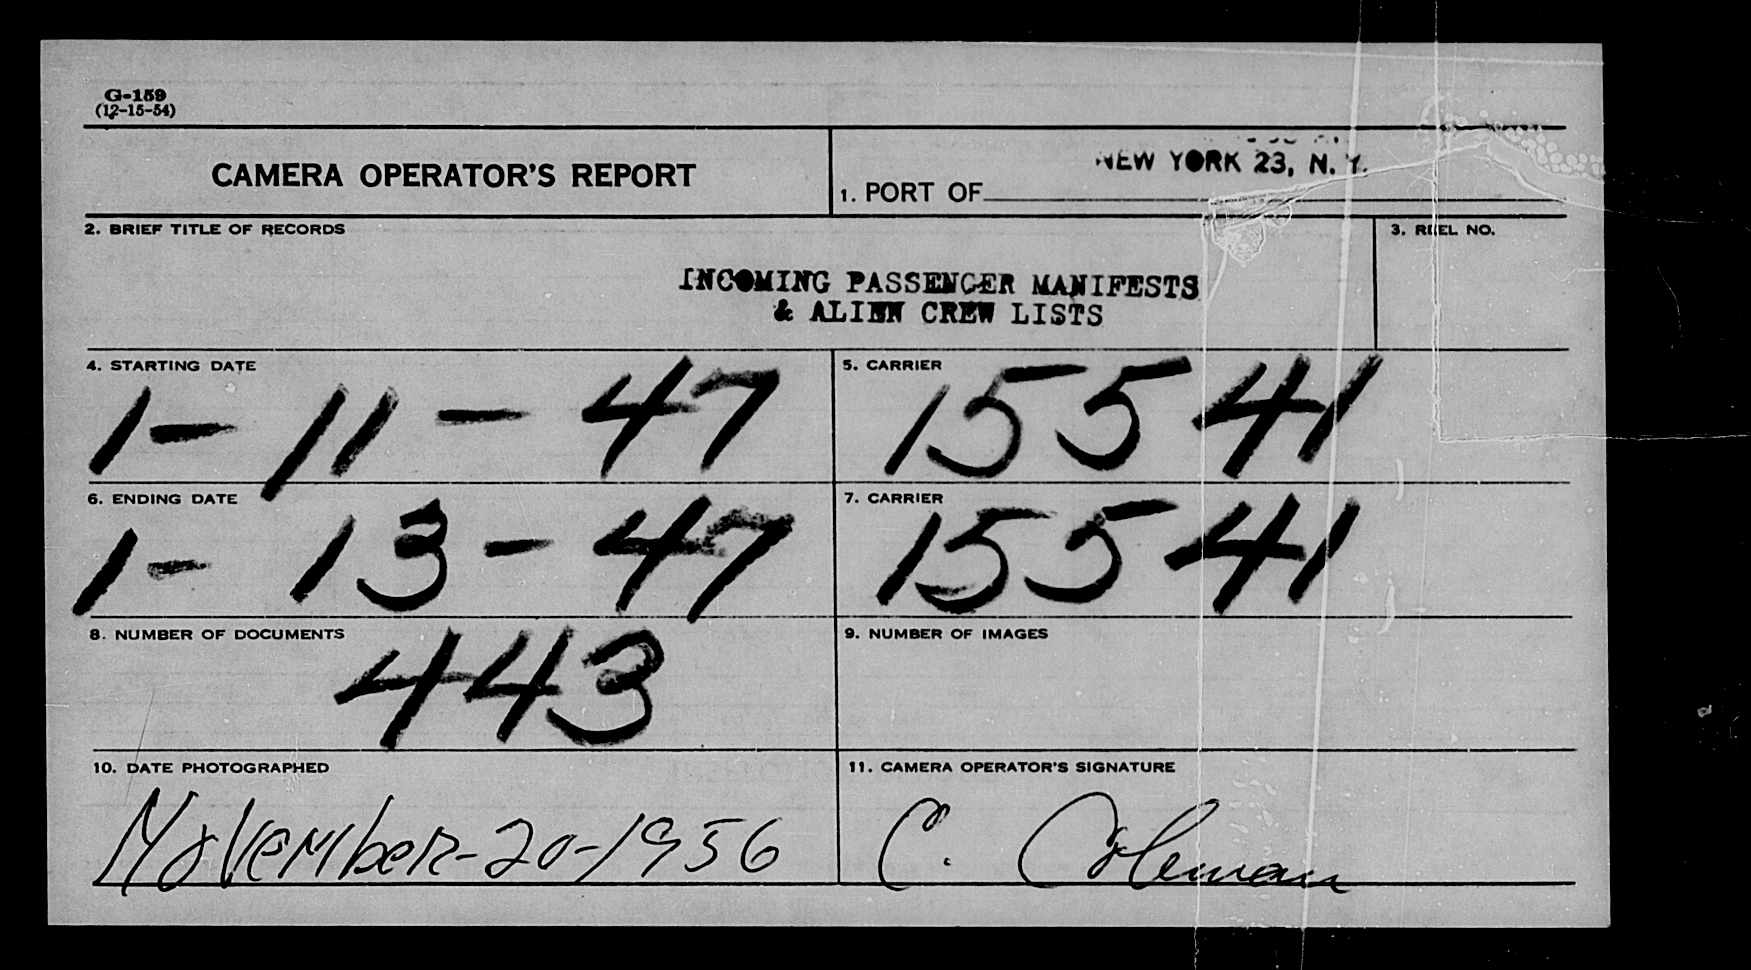 G-159
(12-15-54)
CAMERA OPERATOR'S REPORT
NEW YORK 23, N. Y.
1. PORT OF
2. BRIEF TITLE OF RECORDS
3. REEL NO.
INCOMING PASSENGER MANIFESTS
& ALIEN CREW LISTS
4. STARTING DATE
1-11-47
5. CARRIER
15541
6. ENDING DATE
1-13-47
7. CARRIER
15541
8. NUMBER OF DOCUMENTS
443
9. NUMBER OF IMAGES
10. DATE PHOTOGRAPHED
November-20-1956
11. CAMERA OPERATOR'S SIGNATURE
C. Coleman